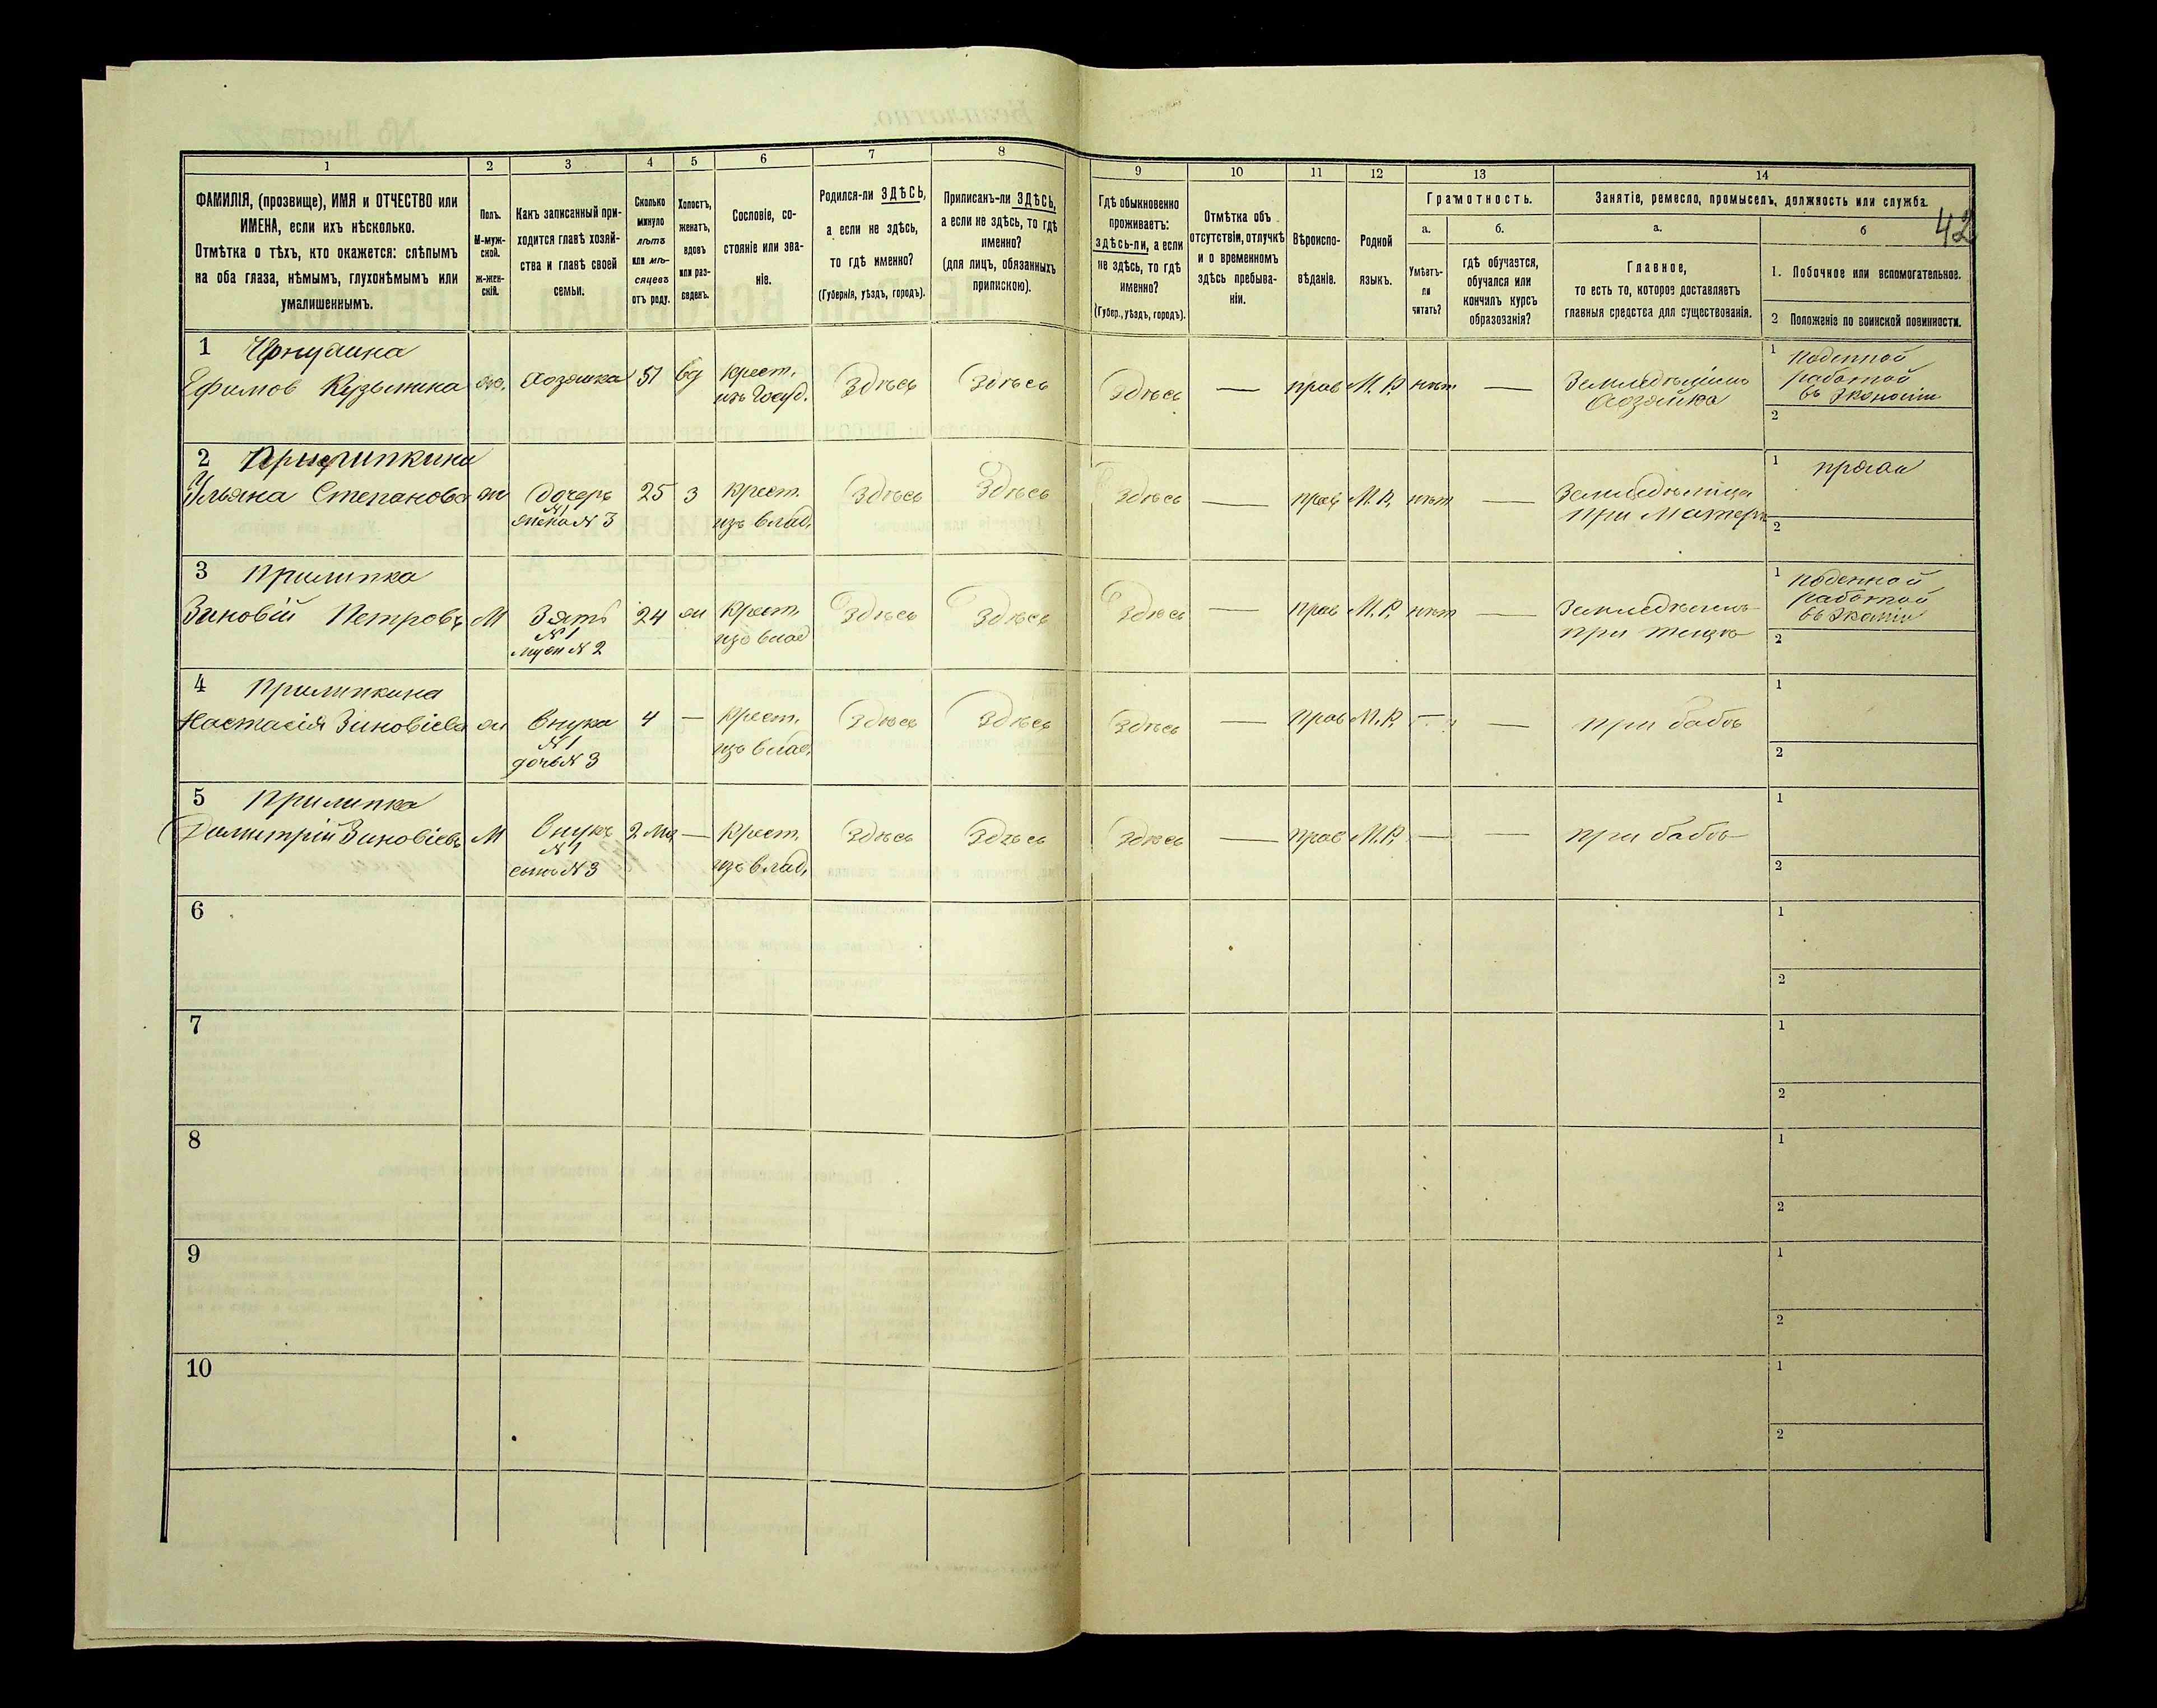 42
1 2 3 4 5 6 7 8 9 10 11 12 13 14
ФАМИЛІЯ, (прозвище), ИМЯ и ОТЧЕСТВО или
ИМЕНА, если ихъ нѣсколько.
Отмѣтка о тѣхъ, кто окажется: слѣпымъ
на оба глаза, нѣмымъ, глухонѣмымъ или
умалишеннымъ.
Полъ.
М-муж-
ской.
ж-жен-
скій.
Какъ записанный при-
ходится главѣ хозяй-
ства и главѣ своей
семьи.
Сколько
минуло
лѣтъ
или мѣ-
сяцевъ
отъ роду.
Холостъ,
женатъ,
вдовъ
или раз-
веденъ.
Сословіе, со-
стояніе или зва-
ніе.
Родился-ли ЗДѢСЬ,
а если не здѣсь,
то гдѣ именно?
(Губернія, уѣздъ, городъ).
Приписанъ-ли ЗДѢСЬ,
а если не здѣсь, то гдѣ
именно?
(для лицъ, обязанныхъ
припискою).
Гдѣ обыкновенно
проживаетъ:
здѣсь-ли, а если
не здѣсь, то гдѣ
именно?
(Губер., уѣздъ, городъ).
Отмѣтка объ
отсутствіи, отлучкѣ
и о временномъ
здѣсь пребыва-
ніи.
Вѣроиспо-
вѣданіе.
Родной
языкъ.
Грамотность.
а.
Умѣетъ-
ли
читать?
б.
гдѣ обучается,
обучался или
кончилъ курсъ
образованія?
Занятіе, ремесло, промыселъ, должность или служба.
а.
Главное,
то есть то, которое доставляетъ
главныя средства для существованія.
б
1. Побочное или вспомогательное.
2 Положеніе по воинской повинности.
1
Ефимов Кузьмина
Хозяйка 51 вд крест.
изъ Госуд.
Здѣсь Здѣсь Здѣсь — прав М. Р. нѣтъ —
Хозяйка
1 поденной
работой
въ Экономіи
2
2
Ульяна Степанова ж дочерь
N 1
жена N 3
25 з крест.
изъ влад.
Здѣсь Здѣсь Здѣсь — прав М. Р. нѣтъ — Земледѣлица
при Матери
1 пряха
2
3 Прилипка
Зиновій Петровъ М Зять
N 1
мужъ N 2
24 ж крест.
изъ влад
Здѣсь Здѣсь Здѣсь — прав М. Р. нѣтъ —
при тещѣ
1 поденной
работой
2
4 Прилипкина
Настасія Зиновіева ж Внука
N 1
дочь N 3
4 — крест.
изъ влад.
Здѣсь Здѣсь Здѣсь — прав М. Р. — — при бабѣ
1
2
5 Прилипка
Димитрій Зиновіевъ М Внукъ
N 1
сынъ N 3
2 мѣ — крест.
изъ влад.
Здѣсь Здѣсь Здѣсь — прав М. Р. — — при бабѣ
1
2
6
1
2
7
1
2
8
1
2
9
1
2
10
1
2